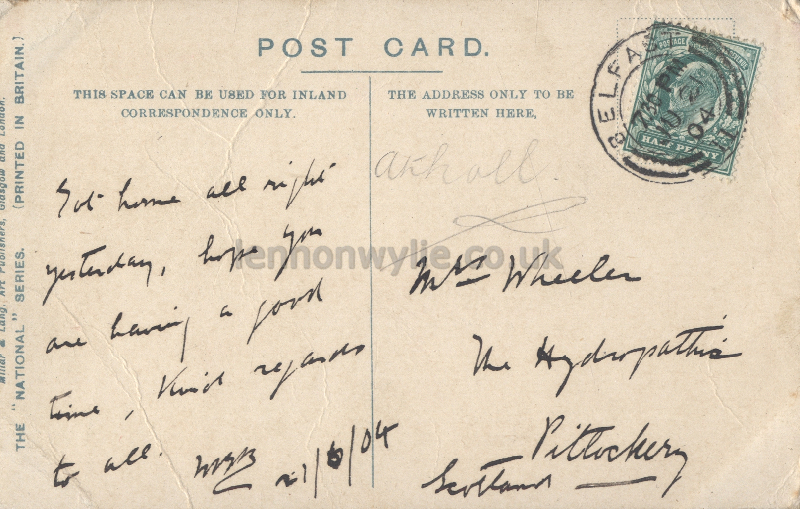 POST CARD.
THIS SPACE CAN BE USED FOR INLAND
CORRESPONDENCE ONLY.
THE ADDRESS ONLY TO BE
WRITTEN HERE,
BELFAST
POSTAGE
HALF PENNY
04
Millar & Lang, Art Publishers, Glasgow and London.
THE "NATIONAL" SERIES. (PRINTED IN BRITAIN.)
Got home all right
yesterday, hope you
are having a good
time, Kind regards
to all.
21/6/04
Atholl.
Mrs Wheeler
The Hydropathic
Pitlochery
Scotland
lennonwylie.co.uk